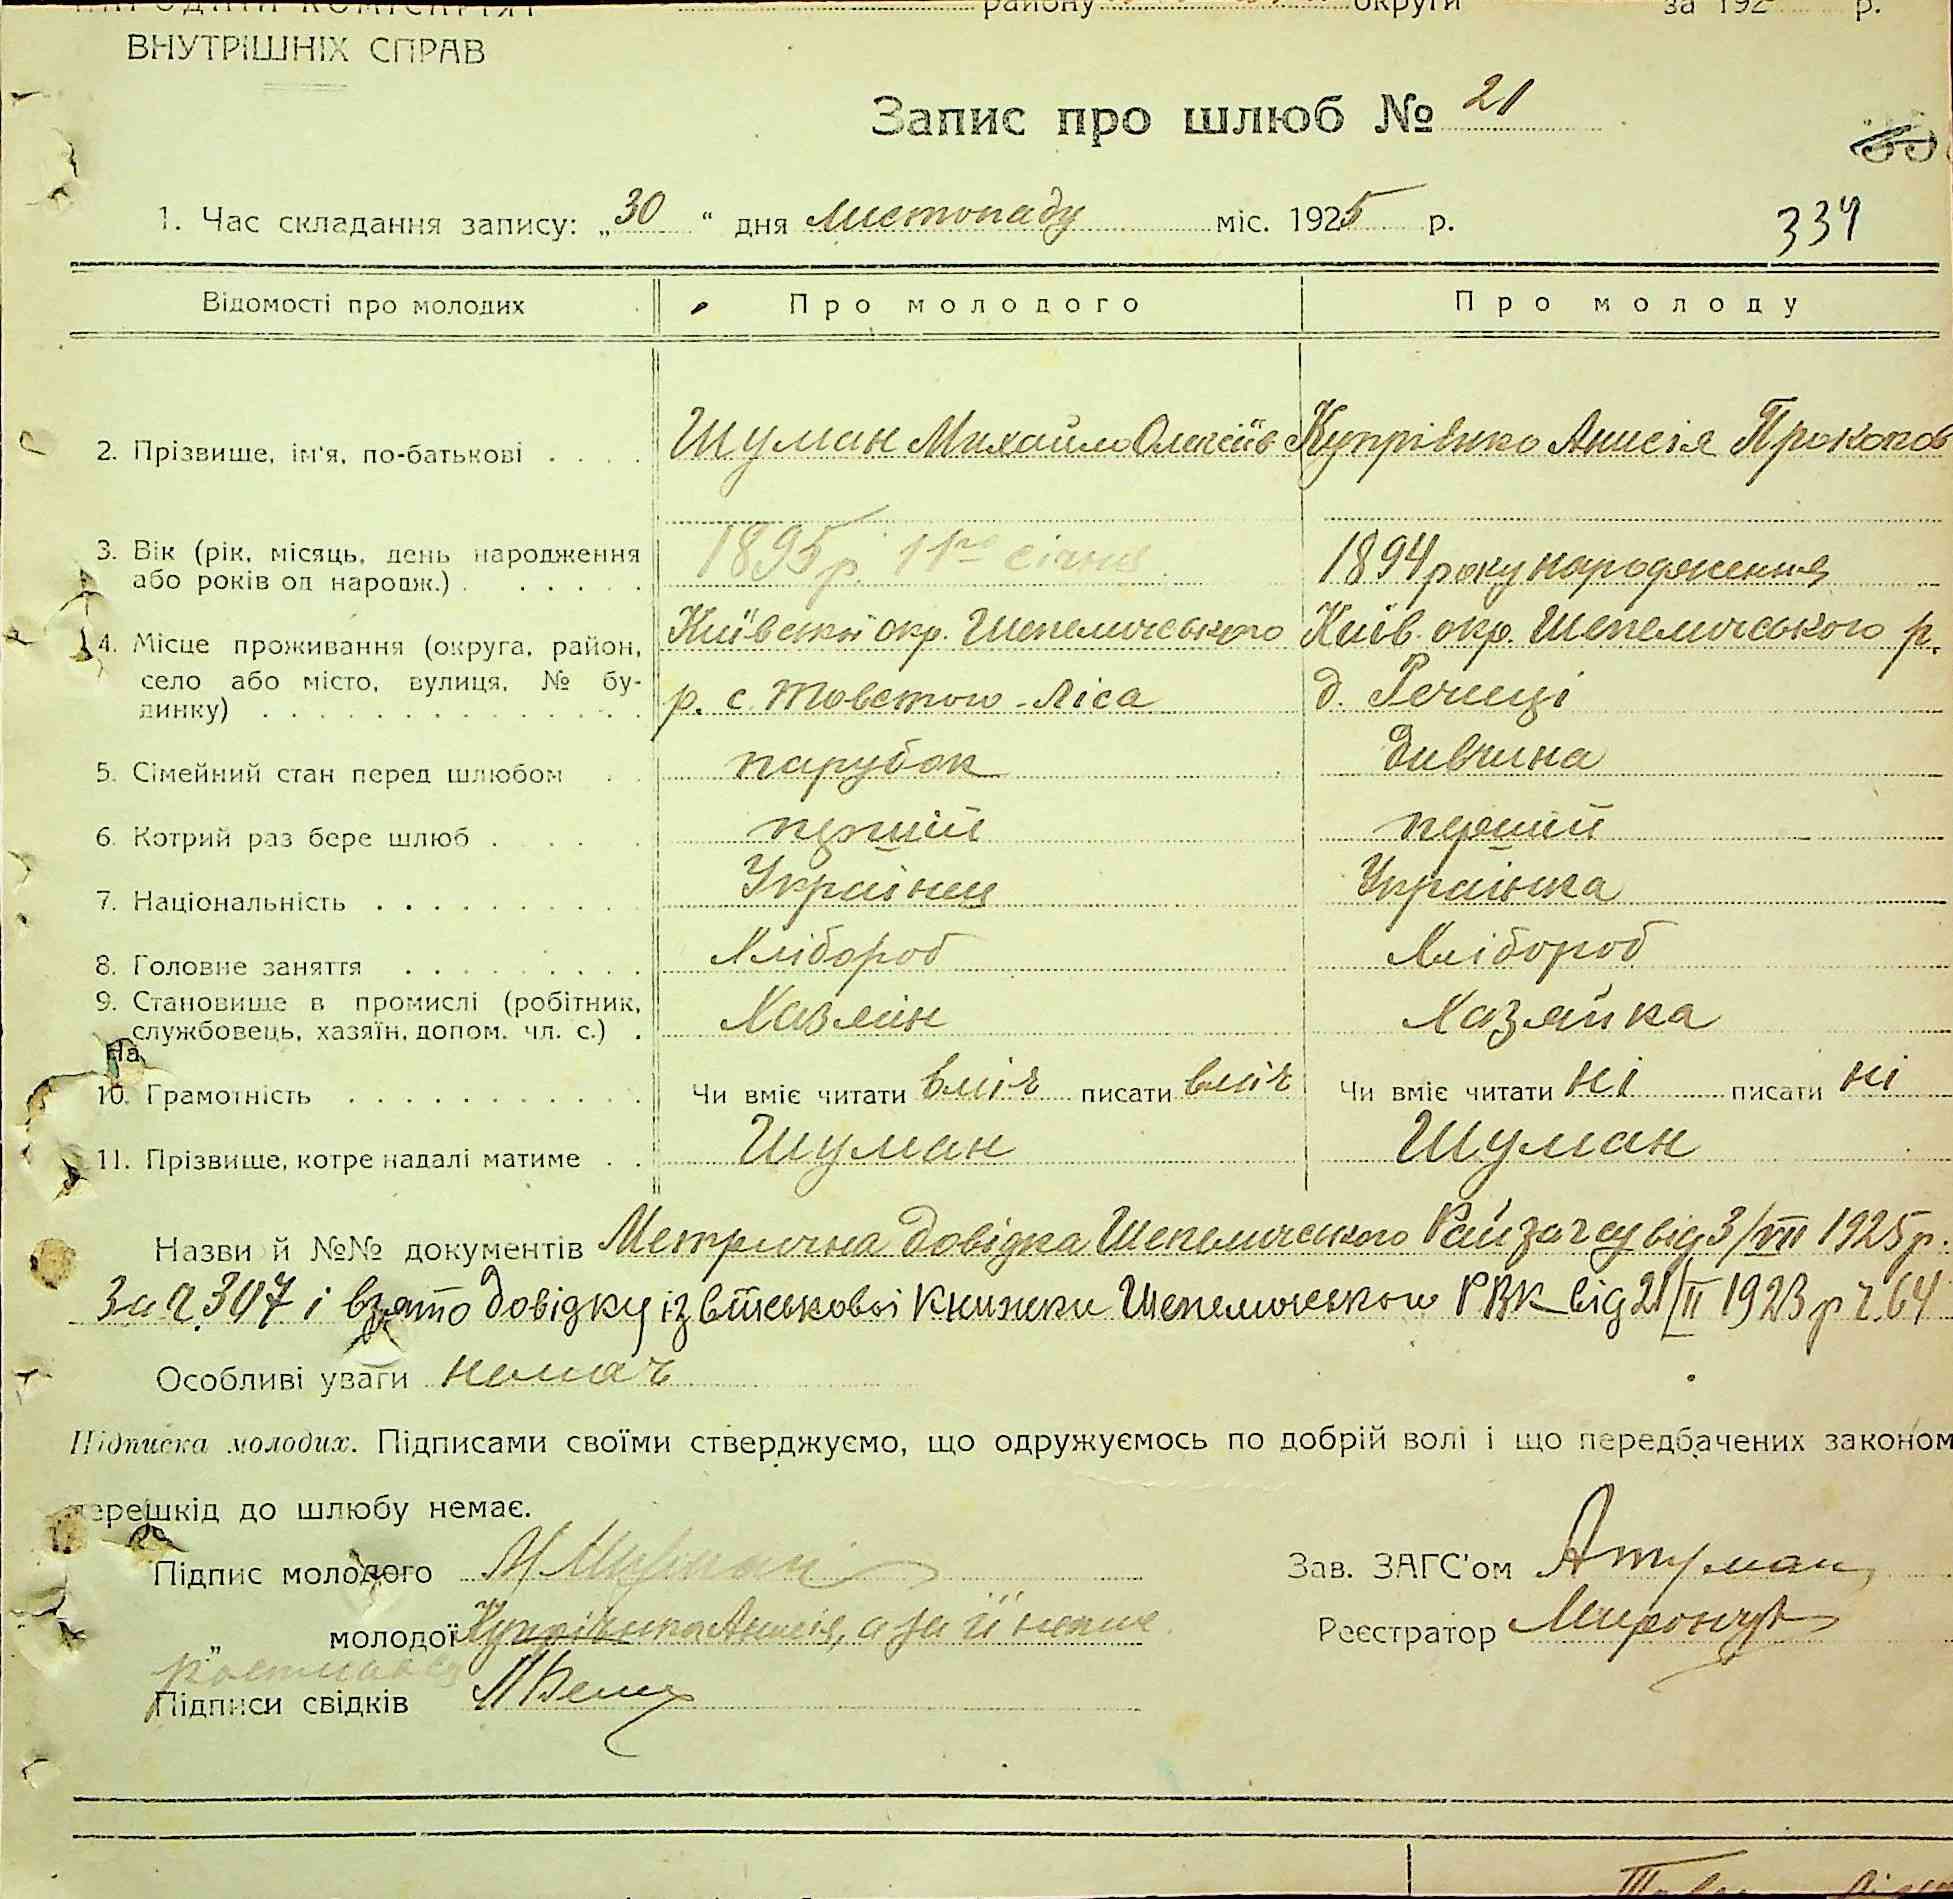 району округи за 192 р.
ВНУТРІШНІХ СПРАВ
Запис про шлюб № 21
1. Час складання запису: „30“ дня листопаду міс. 1925 р.
334
Відомості про молодих Про молодого Про молоду
2. Прізвище, ім'я, по-батькові Шуман Михайло Олексіїв Купрієнко Анисія Прокопов
3. Вік (рік, місяць, день народження 1895 р. 11го січня 1894 року народження
або років од народж.)
4. Місце проживання (округа, район, Київської окр. Шепелицького Київ. окр. Шепелицького р.
село або місто, вулиця, № бу- р. с. Товстого-Ліса д. Речиці
динку)
5. Сімейний стан перед шлюбом парубок дивчина
6. Котрий раз бере шлюб перший перший
7. Національність Українец Українка
8. Головне заняття Хлібороб Хлібороб
9. Становище в промислі (робітник,
службовець, хазяїн, допом. чл. с.) Хазяін Хазяйка
На
10. Грамотність Чи вміє читати вміє писати вміє Чи вміє читати ні писати ні
11. Прізвище, котре надалі матиме Шуман Шуман
Назви й №№ документів Метрична довідка Шепелицького Райзагсу від 3/VII 1925 р.
За ч. 307 і взято довідку із військової книжки Шепелицького РВК від 21/II 1923 р ч. 64
Особливі уваги немає
Підписка молодих. Підписами своїми стверджуємо, що одружуємось по добрій волі і що передбачених законом
перешкід до шлюбу немає.
Підпис молодого МШуман Зав. ЗАГС'ом
„ молодої Купрієнко Анисія, а за її непис Реєстратор Мирончук
Підписи свідків